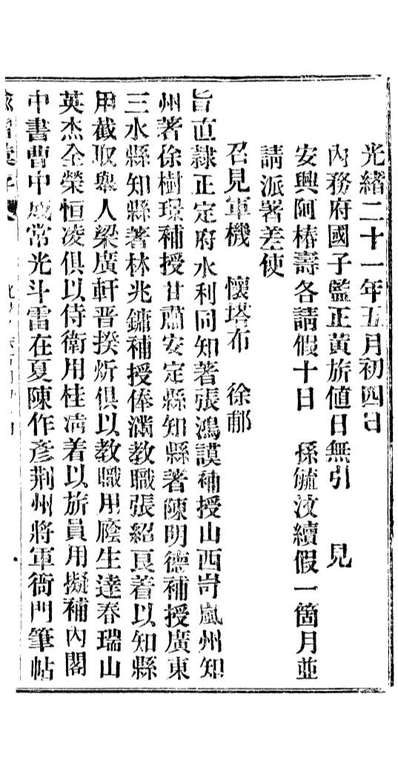 光緒二十一年五月初四日
內務府國子監正黃旂值日無引　見
安興阿椿壽各請假十日　孫毓汶續假一箇月並
請派署差使
召見軍機　懷塔布　徐郙
旨直隸正定府水利同知著張鴻謨補授山西岢嵐州知
州著徐樹璟補授甘肅安定縣知縣著陳明德補授廣東
三水縣知縣著林兆鏞補授俸滿教職張紹良着以知縣
用截取舉人梁廣軒晉揆炘俱以教職用廕生達春瑞山
英杰全榮恒凌俱以侍衛用桂清着以旂員用擬補內閣
中書曹中成常光斗雷在夏陳作彥荊州將軍衙門筆帖